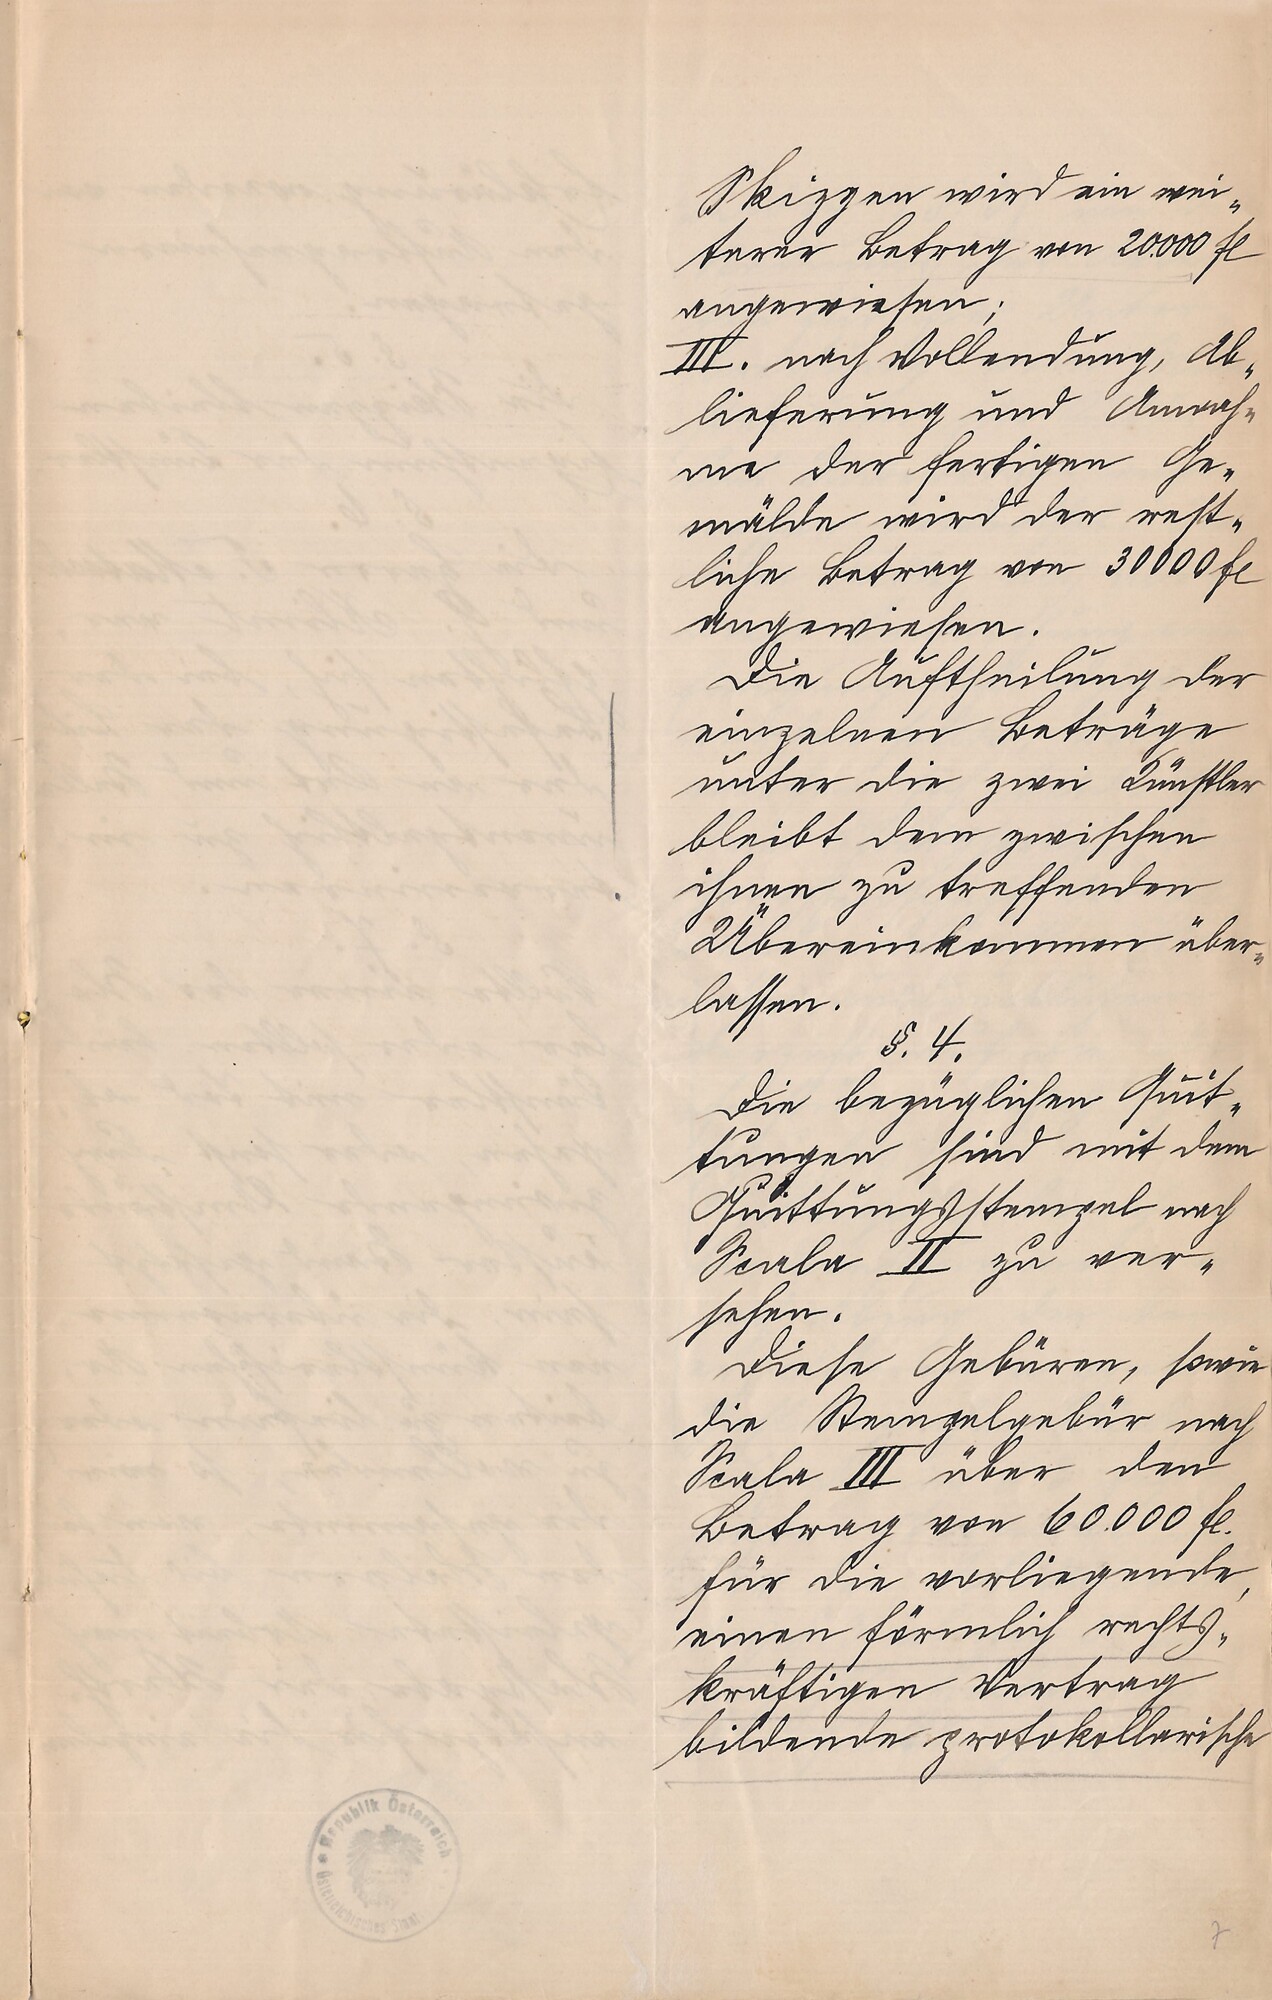 Skizzen wird ein wei-
terer Betrag von 20.000 fl
angewiesen;
III. nach Vollendung, Ab-
lieferung und Annah-
me der fertigen Ge-
mälde wird der rest-
liche Betrag von 30000 fl
angewiesen.
Die Auftheilung der
einzelnen Beträge
unter die zwei Künstler
bleibt dem zwischen
ihnen zu treffenden
Übereinkommen über-
lassen.
§. 4.
Die bezüglichen Quit-
tungen sind mit dem
Quittungsstempel nach
Scala II zu ver-
sehen.
Diese Gebüren, sowie
die Stempelgebür nach
Scala III über den
Betrag von 60.000 fl.
für die vorliegende,
einen förmlich rechts-
kräftigen Vertrag
bildende protokollarische
Republik Österreich
Österreichisches Staat
7